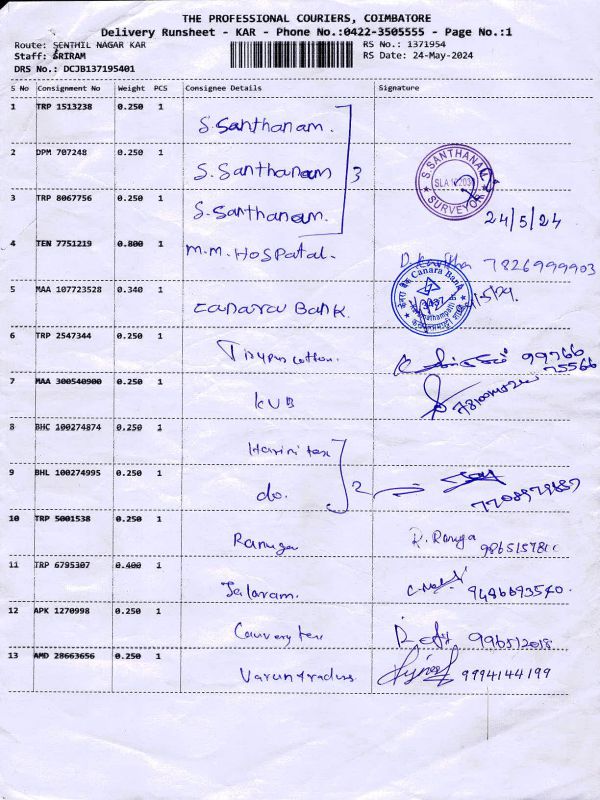 THE PROFESSIONAL COURIERS, COIMBATORE
Delivery Runsheet - KAR - Phone No.:0422-3505555 - Page No.:1
Route: SENTHIL NAGAR KAR
RS No.: 1371954
Staff: SRIRAM
RS Date: 24-May-2024
DRS No.: DCJB137195401
S No Consignment No Weight PCS Consignee Details Signature
1 TRP 1513238 0.250 1 S. Santhanam.
2 DPM 707248 0.250 1 S. Santhanam 3
S.SANTHANAM
SURVEYOR
3 TRP 8067756 0.250 1 S. Santhanam.
24/5/24
4 TEN 7751219 0.800 1 M.M. Hospatal. 7826999903
केनरा बैंक Canara Bank
5 MAA 107723528 0.340 1 Canara Bank.
6 TRP 2547344 0.250 1 Tirupur cotton. 99766
75566
7 MAA 300540900 0.250 1 KVB
8 BHC 100274874 0.250 1 Harini tex
9 BHL 100274995 0.250 1 do. 2
10 TRP 5001538 0.250 1 Ranuga R. Ranuga
11 TRP 6795307 0.400 1 Jalaram. 9486693540.
12 APK 1270998 0.250 1 Cauvery tex
13 AMD 28663656 0.250 1 Varun traders 9994144199